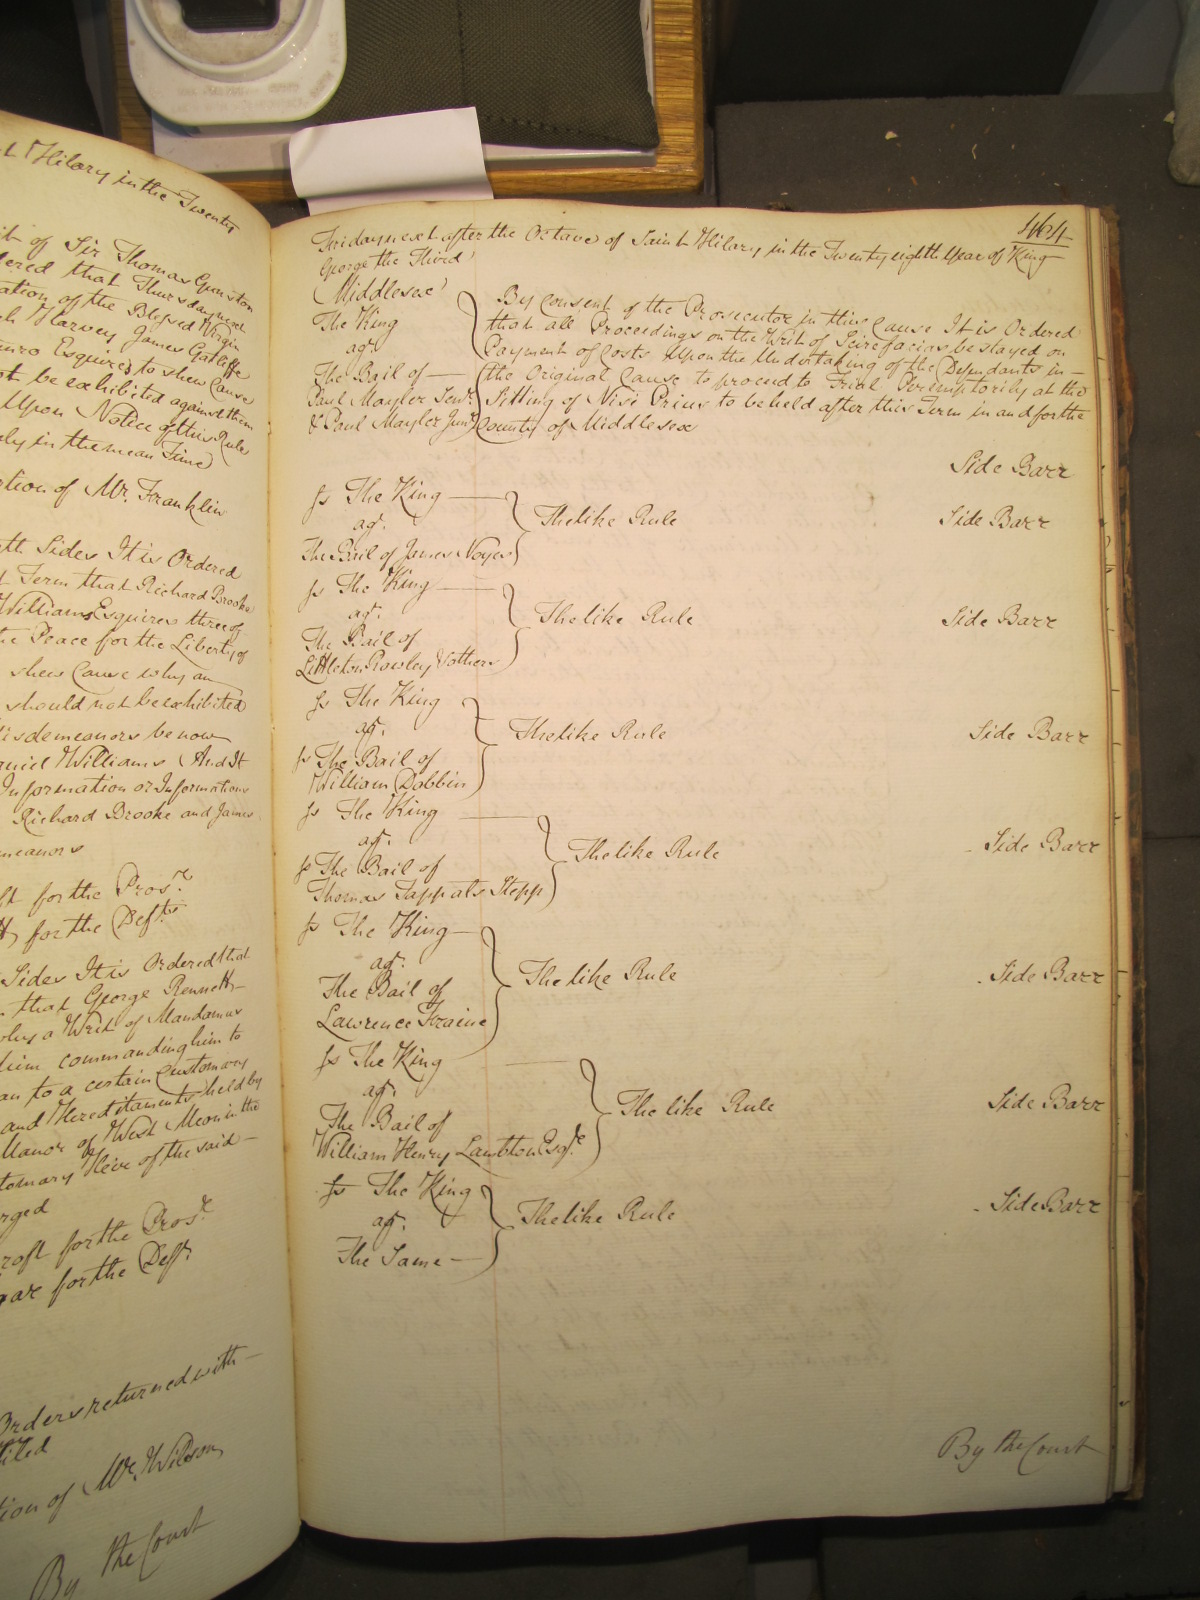 Hilary in the Twenty
of Sir Thomas Gunston
ordered that Thursday next
ation of the Blessed Virgin
Harvey James Gatliffe
unro Esquires to shew Cause
be exhibited against them
Upon Notice of this Rule
in the mean Time
tion of Mr. Franklin
Sides It is Ordered
Term that Richard Brooke
Williams Esquires three of
the Peace for the Liberty of
shew Cause why an
should not be exhibited
isdemeanors be now
aniel Williams And It
Information or Informations
Richard Brooke and James
meanors
ft for the Prosr.
for the Defts
Sides It is Ordered that
that George Rennett
why a Writ of Mandamus
him commanding him to
to a certain Customary
and Hereditaments held by
Manor of West Meon in the
tomary Heir of the said
rged
croft for the Prosr.
for the Deft.
Orders returned with
filed
tion of Mr. Wilson
By the Court
464
Friday next after the Octave of Saint Hilary in the Twenty eighth Year of King
George the Third
Middlesex
The King
agt.
The Bail of
Paul Mayler Senr.
& Paul Mayler Junr.
By Consent of the Prosecutor in this Cause It is Ordered
that all Proceedings on the Writ of Scire facias be stayed on
Payment of Costs Upon the Undertaking of the Defendants in
the Original Cause to proceed to Trial Peremptorily at the
Sitting of Nisi Prius to be held after this Term in and for the
County of Middlesex
Side Barr
Ss The King
agt.
The Bail of James Noyes
The like Rule
Side Barr
Ss The King
agt.
The Bail of
Littleton Rowley & others
The like Rule
Side Barr
Ss The King
agt.
Ss The Bail of
William Dobbin
The like Rule
Side Barr
Ss The King
agt.
Ss The Bail of
Thomas Stepp
The like Rule
Side Barr
Ss The King
agt.
The Bail of
Lawrence Fraine
The like Rule
Side Barr
Ss The King
agt.
The Bail of
William Henry Lambton Esqr.
The like Rule
Side Barr
Ss The King
agt.
The Same
The like Rule
Side Barr
By the Court